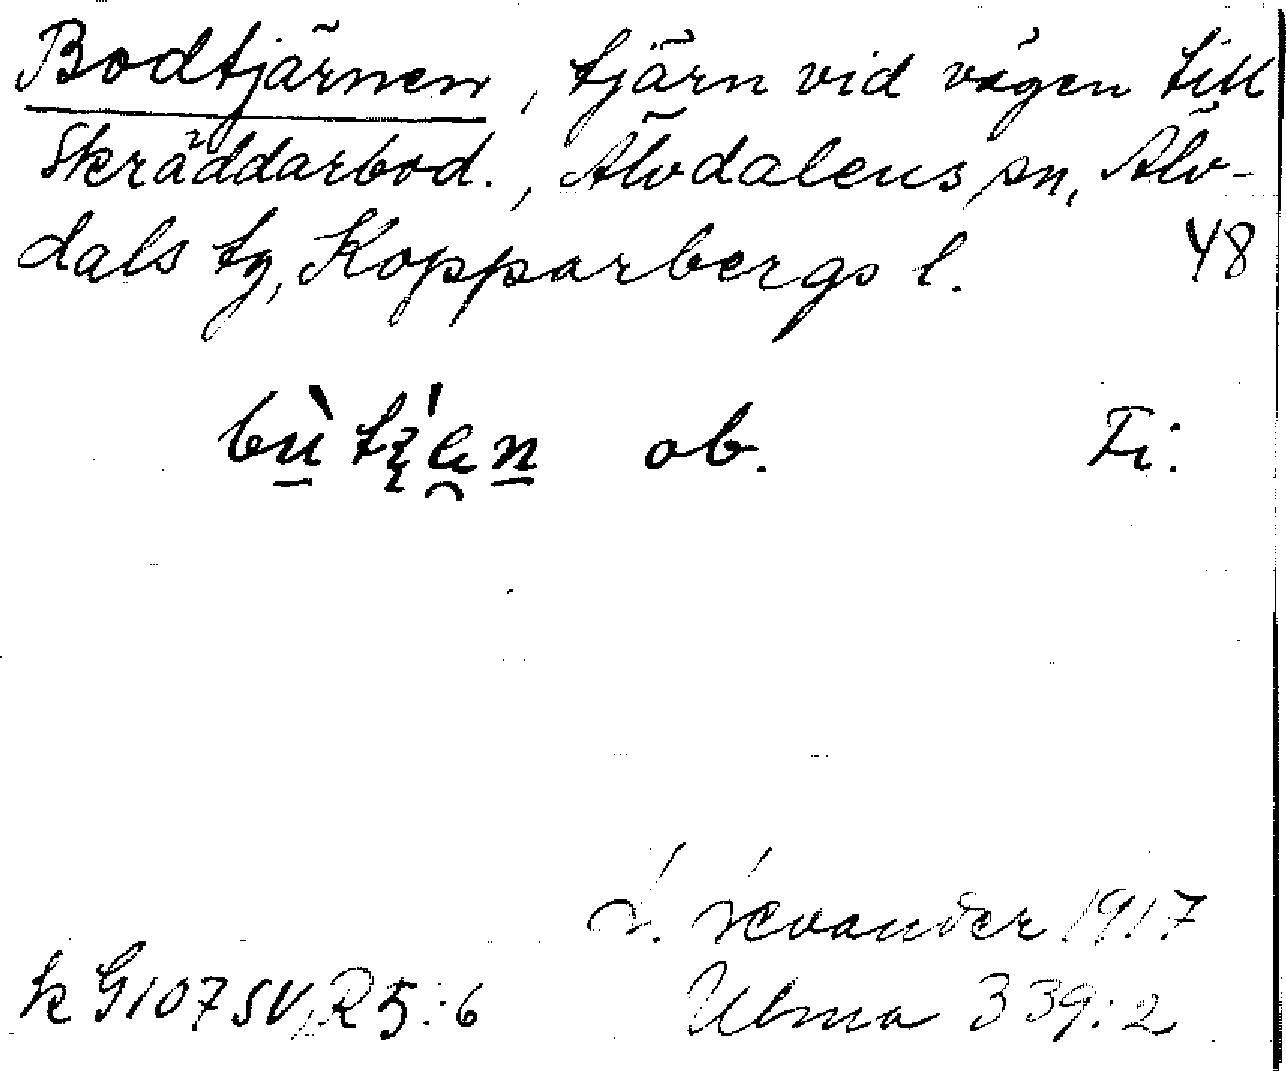 Bodtjärnen, tjärn vid vägen till
Skräddarbod., Älvdalens sn, Älv-
dals tg, Kopparbergs l. 48
ob. Fi:
L. Levander 1917
k G107 SV, R5:6 Ulma 339:2